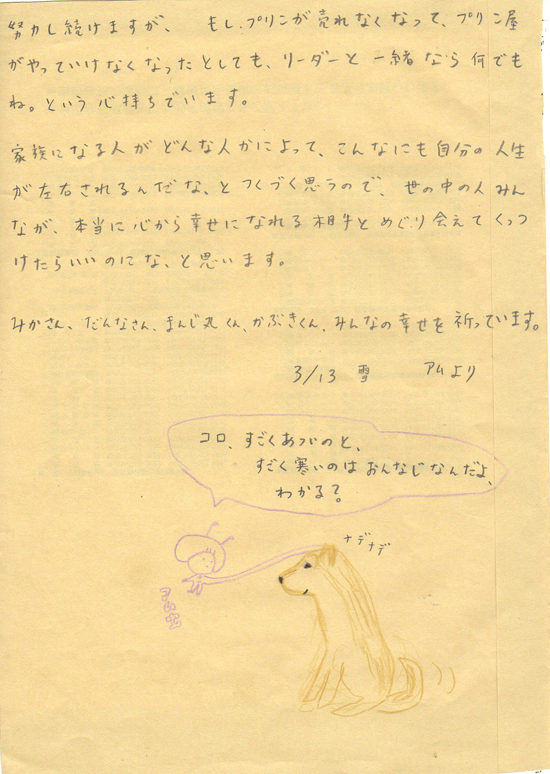 努力し続けますが、 もし、プリンが売れなくなって、プリン屋
がやっていけなくなったとしても、リーダーと一緒なら何でも
ね。という心持ちでいます。
家族になる人がどんな人かによって、こんなにも自分の人生
が左右されるんだな、とつくづく思うので、世の中の人みん
なが、本当に心から幸せになれる相手とめぐり会えてくっつ
けたらいいのにな、と思います。
みかさん、だんなさん、まんじ丸くん、かぶきくん、みんなの幸せを祈っています。
3/13 雪 アムより
コロ、すごくあついのと、
すごく寒いのはおんなじなんだよ、
わかる?
ナデナデ